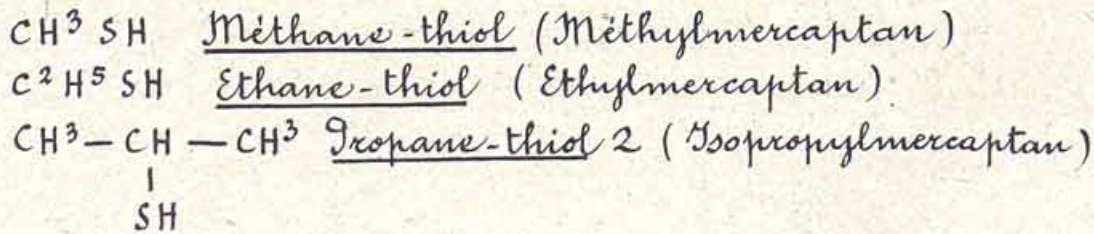 CH³ SH Méthane-thiol (Méthylmercaptan)
C² H⁵ SH Ethane-thiol (Ethylmercaptan)
CH³ — CH — CH³ Propane-thiol 2 (Isopropylmercaptan)
|
SH